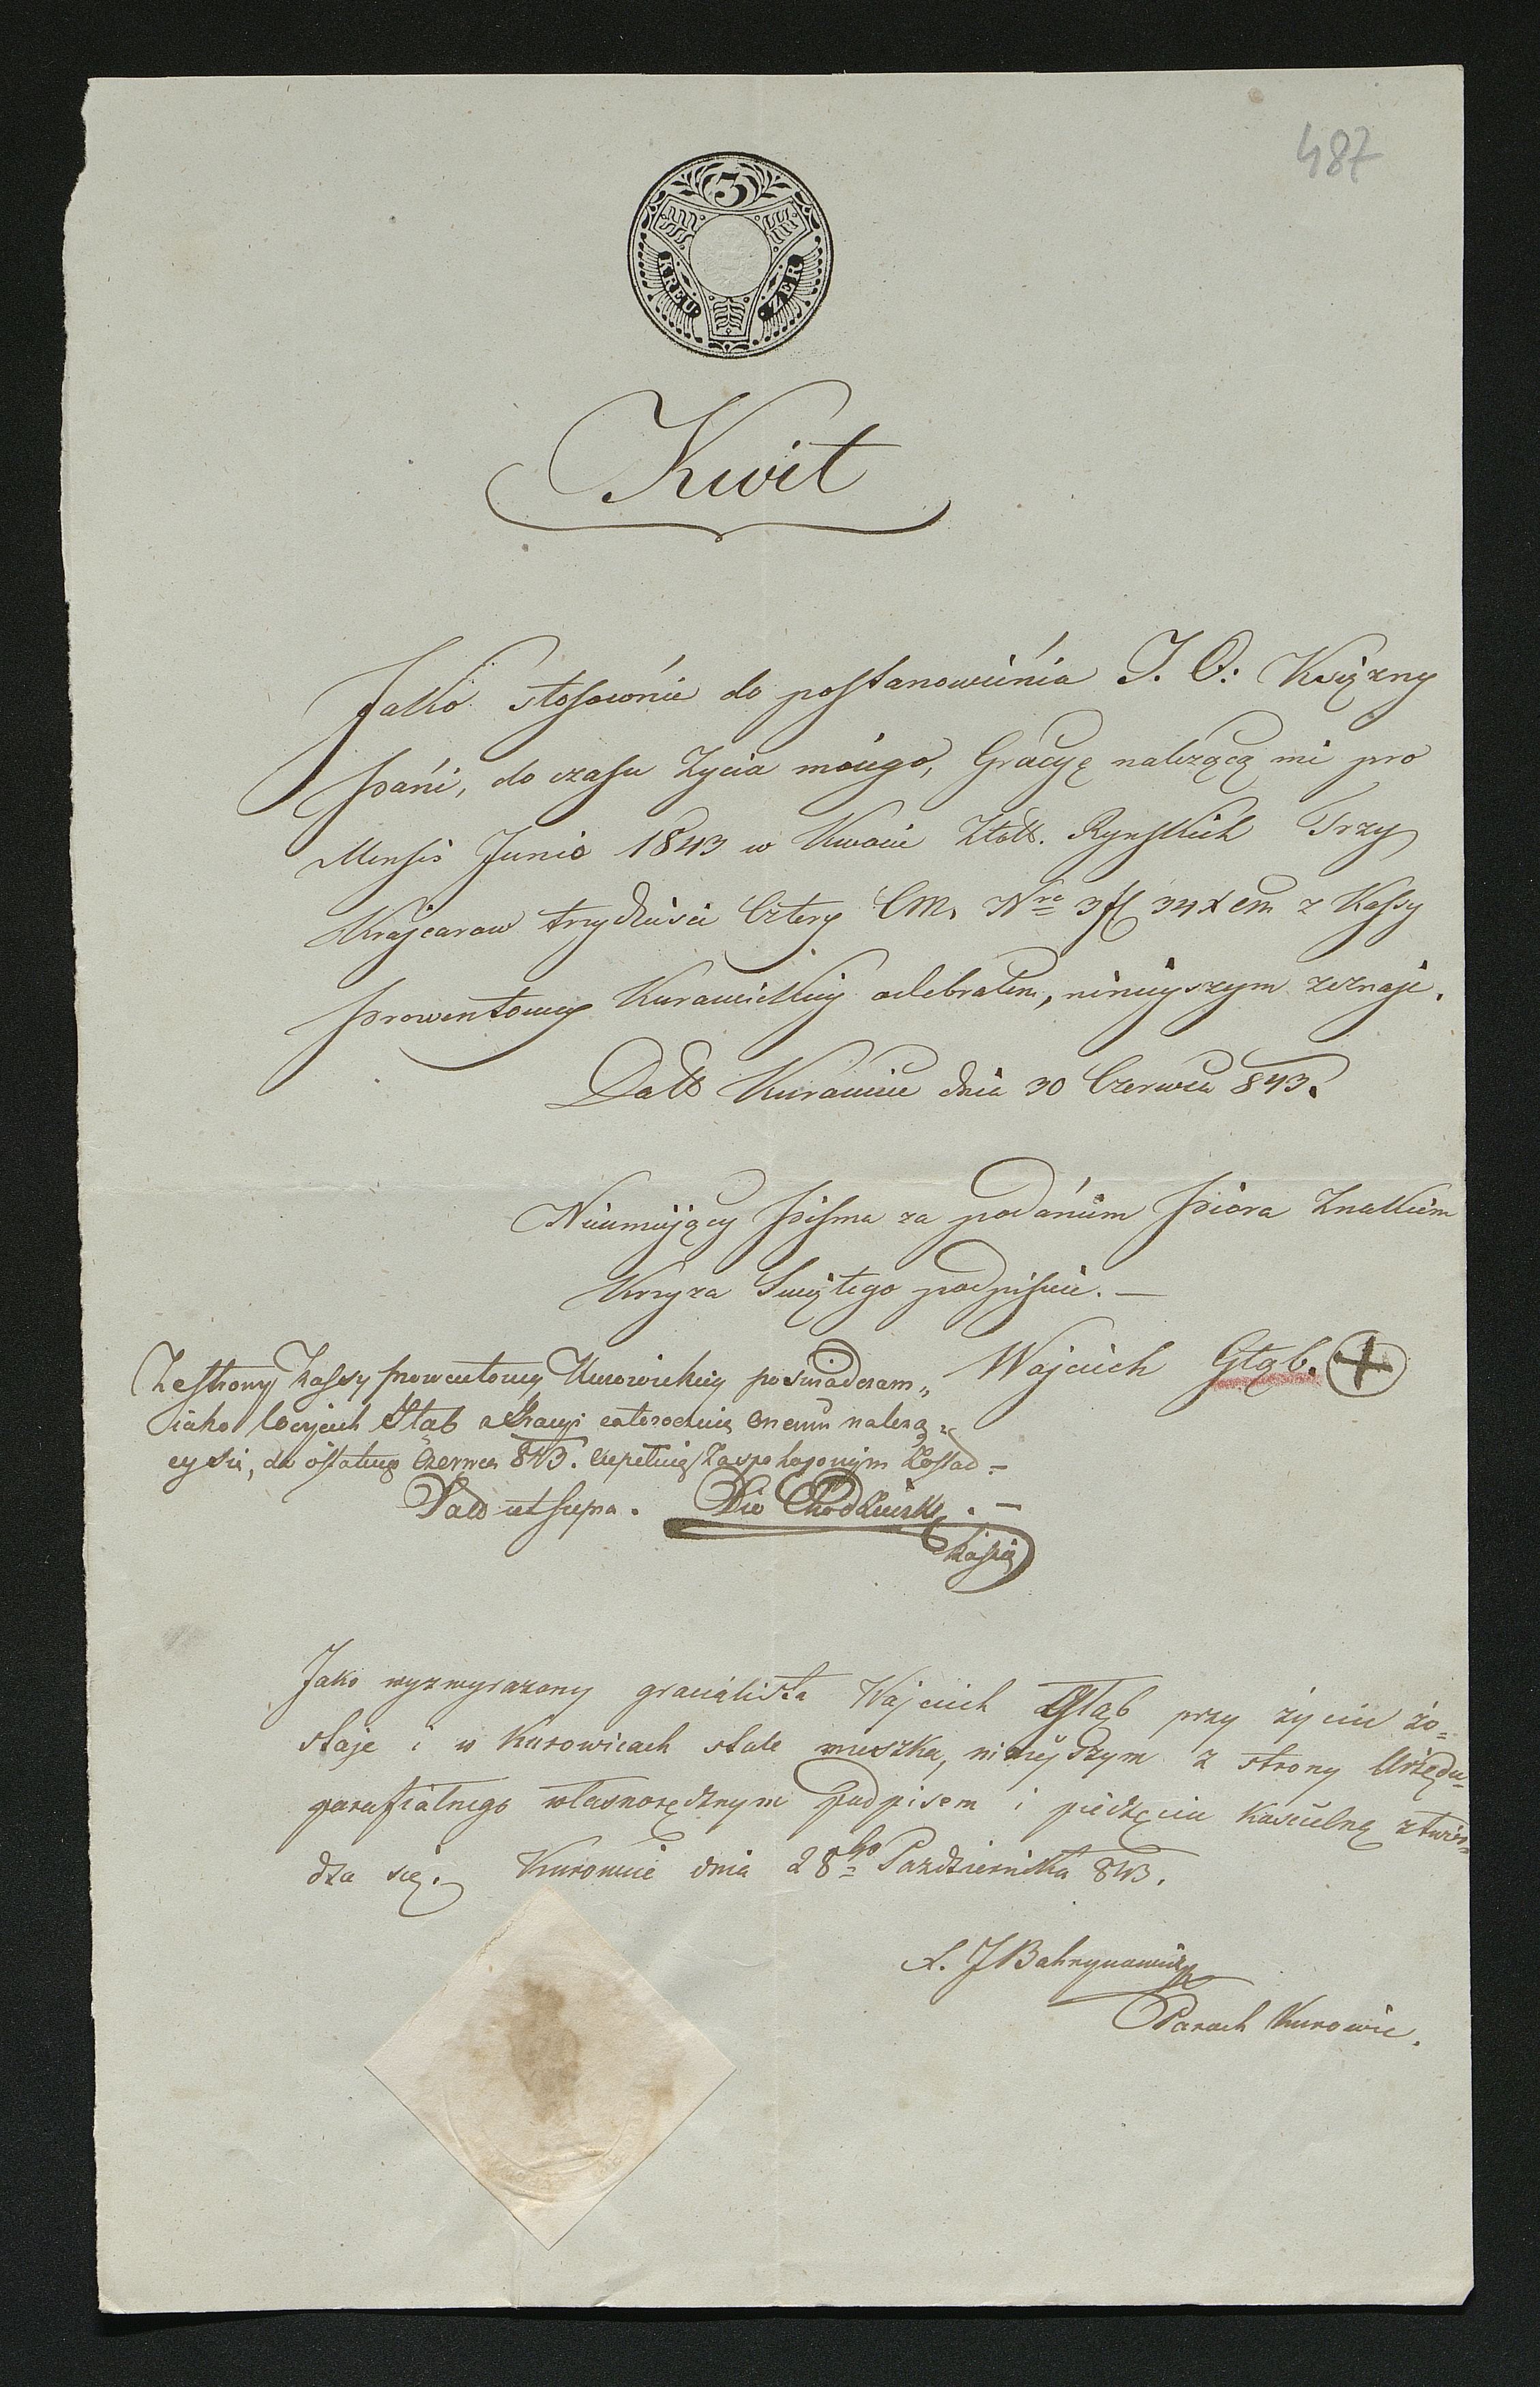 487
3
KREU ZER
Kwit
Jako stosownie do postanowienia J. O: Xiężny
Pani, do czasu Zycia moiego, Gracyę należącą mi pro
Mensis Junio 1843 w Kwocie Złott. Rynskich Trzy
Krajcarow trzydziesci Cztery CM. Nro 3 f 34 x cm z Kassy
Prowentowey Kurowickiey odebrałem, nineyszym zeznaje.
Datt Kurowice dnia 30 Czerwca 843.
Nieumiejący Pisma za podaniem Piora Znakiem
Krzyza Swiętego podpisuie. —
Wojciech Głąb. +
Ze strony Kassy prowentowey Kurowickiey poswiadczam„
iako Woyciech Głąb z Gracyi całoroczniey onemu należą„
cy sie, do ostatniego Czerwca 843. zupełnie Zaspokojonym Został —
Datt ut supra. Chodziński . —
Kassier
Jako wyzwyrazony gracialista Wojciech Głąb przy życiu zo„
staje i w Kurowicach stale mieszka, niniejszym z strony Urzędu
parafialnego własnoręcznym Podpisem i pieczęcią Kościelną ztwier„
dza się. Kurowice dnia 28go Pazdziernika 843.
Paroch Kurowic.